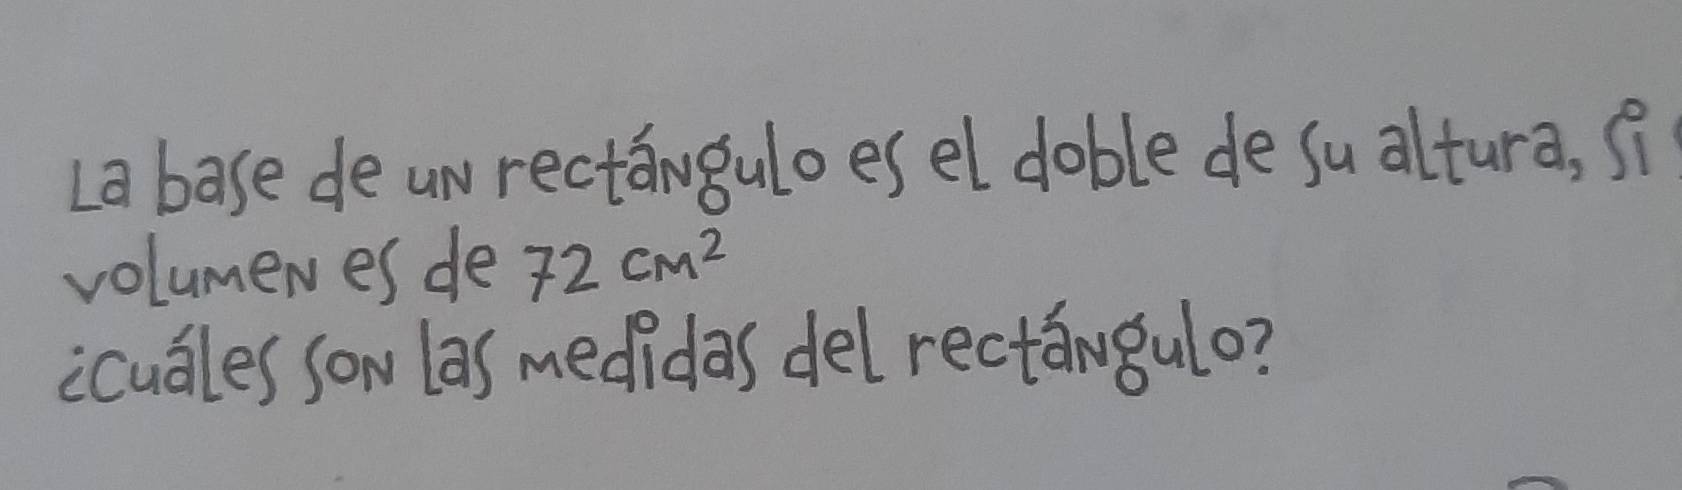 La base de un rectángulo es el doble de su altura, si
volumen es de 72 cm²
¿cuáles son las medidas del rectángulo?